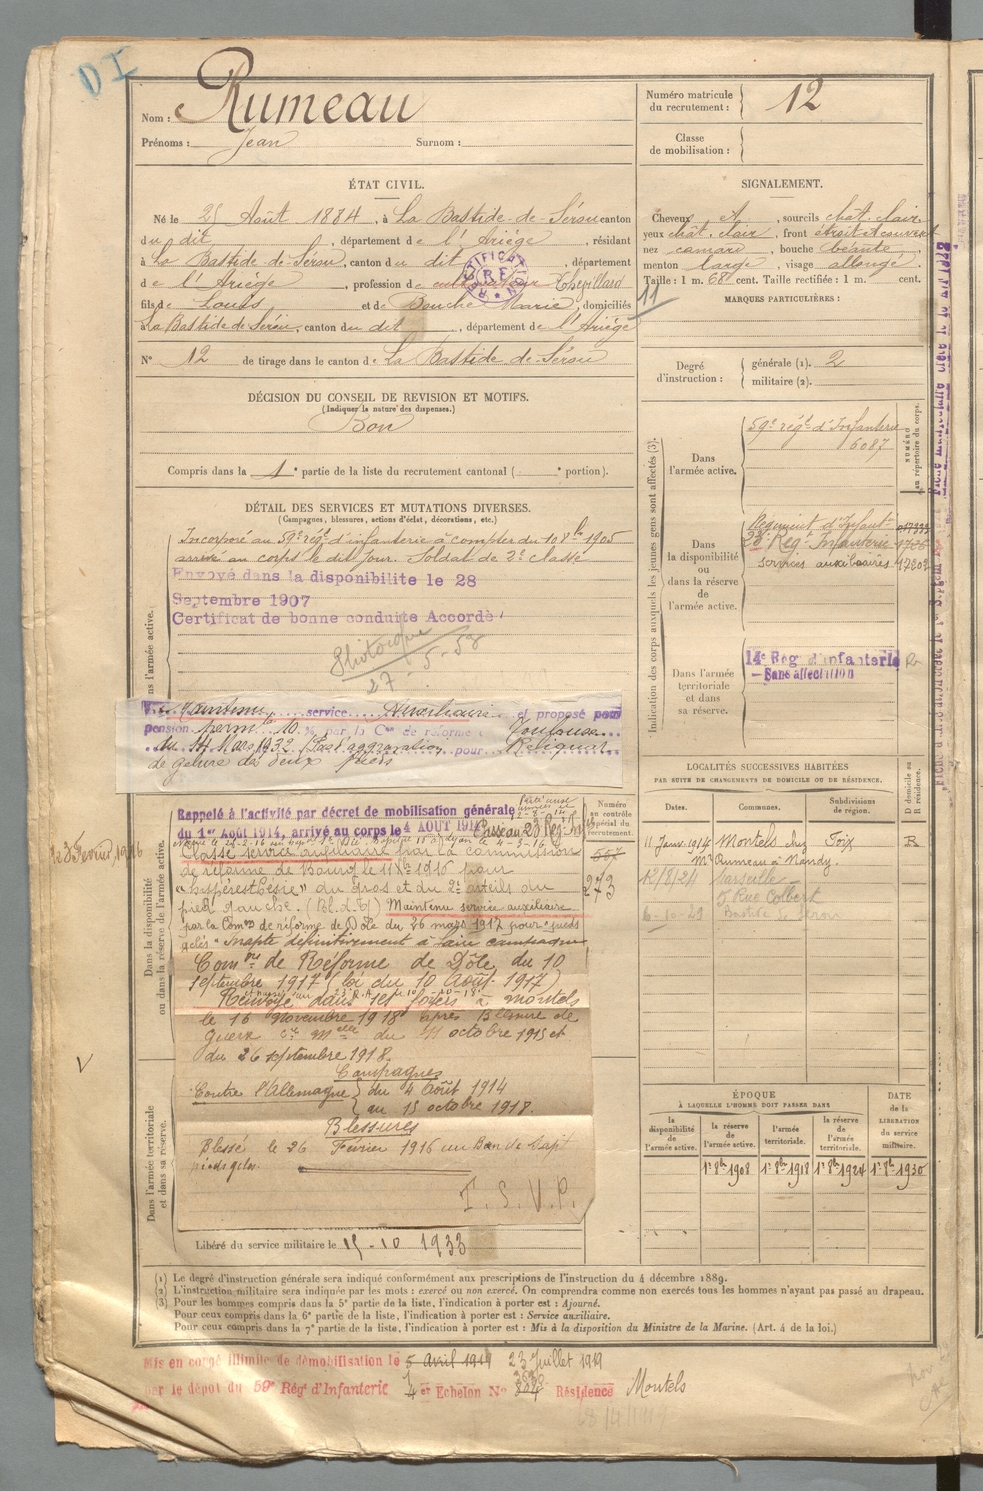 DI
Nom : Rumeau
Prénoms : Jean Surnom :
Numéro matricule du recrutement : 12
Classe de mobilisation :
ÉTAT CIVIL.
Né le 25 Août 1884, à La Bastide-de-Sérou canton
du dit, département de l'Ariége, résidant
à La Bastide-de-Sérou, canton du dit, département
de l'Ariége, profession de cultivateur
fils de Louis et de Bouche Marie, domiciliés
à La Bastide de Sérou, canton du dit, département de l'Ariége
RECTIFICATION R.F.
N° 12 de tirage dans le canton de La Bastide de-Sérou
SIGNALEMENT.
Cheveux et, sourcils chât. clair
yeux chât. clair, front étroit et couvert
nez camard, bouche béante
menton large, visage allongé.
Taille : 1 m. 68 cent. Taille rectifiée : 1 m. cent.
11
MARQUES PARTICULIÈRES :
Degré d'instruction : générale (1). 2
militaire (2).
DÉCISION DU CONSEIL DE REVISION ET MOTIFS.
(Indiquer la nature des dispenses.)
Bon
Compris dans la 1e partie de la liste du recrutement cantonal ( e portion).
DÉTAIL DES SERVICES ET MUTATIONS DIVERSES.
(Campagnes, blessures, actions d'éclat, décorations, etc.)
Incorporé au 59e régt d'infanterie à compter du 10 8bre 1905
arrivé au corps le dit jour. Soldat de 2e classe
Envoyé dans la disponibilite le 28
Septembre 1907
Certificat de bonne conduite Accordé
27
service Auxiliaire et proposé pour
pension perm. 10 % par la Con de réforme Toulouse
du 14 Mars 1932 pour Reliquat
de gelure des deux pieds
Rappelé à l'activité par décret de mobilisation générale
du 1er Août 1914, arrivé au corps le 4 AOUT 1914
Classé service auxiliaire par la commission
de réforme de Bourg le 11 1916 pour
"hyperesthésie" du gros et du 2e orteils du
pied gauche. Maintenu service auxiliaire
par la Comon de réforme de Dôle du 26 mars 1917 pour "pieds
gelés" Inapte définitivement à faire campagne
Comon de Réforme de Dôle du 10
septembre 1917 (loi du 10 Août 1917)
Renvoyé dans ses foyers à Montels
le 16 novembre 1918 après Blessure de
guerre du 11 octobre 1915 et
du 26 septembre 1918.
Campagnes
Contre l'Allemagne } du 4 Août 1914
au 15 octobre 1918.
Blessures
Blessé le 26 Février 1916 au Ban de Sapt
pieds gelés.
T.S.V.P.
Numéro au contrôle spécial du recrutement.
557
273
Libéré du service militaire le 15-10 1933
Dans l'armée active.
Dans la disponibilité ou dans la réserve de l'armée active.
Dans l'armée territoriale et dans sa réserve.
Indication des corps auxquels les jeunes gens sont affectés (3).
NUMÉRO au répertoire du corps.
Dans l'armée active.
59e régt d'Infanterie
6087
Dans la disponibilité ou dans la réserve de l'armée active.
Régiment d'Infant.
23e Regt Infanterie
services auxiliaires
Dans l'armée territoriale et dans sa réserve.
14e Reg d'infanterie
- Sans affectation
LOCALITÉS SUCCESSIVES HABITÉES
PAR SUITE DE CHANGEMENTS DE DOMICILE OU DE RÉSIDENCE.
Dates. Communes. Subdivisions de région. D domicile ou R résidence.
11 Janv. 1914 Montels chez Foix R
Mr Rumeau à Nandy.
12/8/24 Marseille
5 Rue Colbert
Bastide de Serou
ÉPOQUE
À LAQUELLE L'HOMME DOIT PASSER DANS
la disponibilité de l'armée active. la réserve de l'armée active. l'armée territoriale. la réserve de l'armée territoriale. DATE de la LIBÉRATION du service militaire.
1er 8bre 1908 1er 8bre 1918 1er 8bre 1924 1er 8bre 1930
(1) Le degré d'instruction générale sera indiqué conformément aux prescriptions de l'instruction du 4 décembre 1889.
(2) L'instruction militaire sera indiquée par les mots : exercé ou non exercé. On comprendra comme non exercés tous les hommes n'ayant pas passé au drapeau.
(3) Pour les hommes compris dans la 5e partie de la liste, l'indication à porter est : Ajourné.
Pour ceux compris dans la 6e partie de la liste, l'indication à porter est : Service auxiliaire.
Pour ceux compris dans la 7e partie de la liste, l'indication à porter est : Mis à la disposition du Ministre de la Marine. (Art. 4 de la loi.)
Mis en congé illimité de démobilisation le 5 Avril 1919 23 Juillet 1919
par le dépôt du 59e Rég d'Infanterie Echelon No 804 Résidence Montels